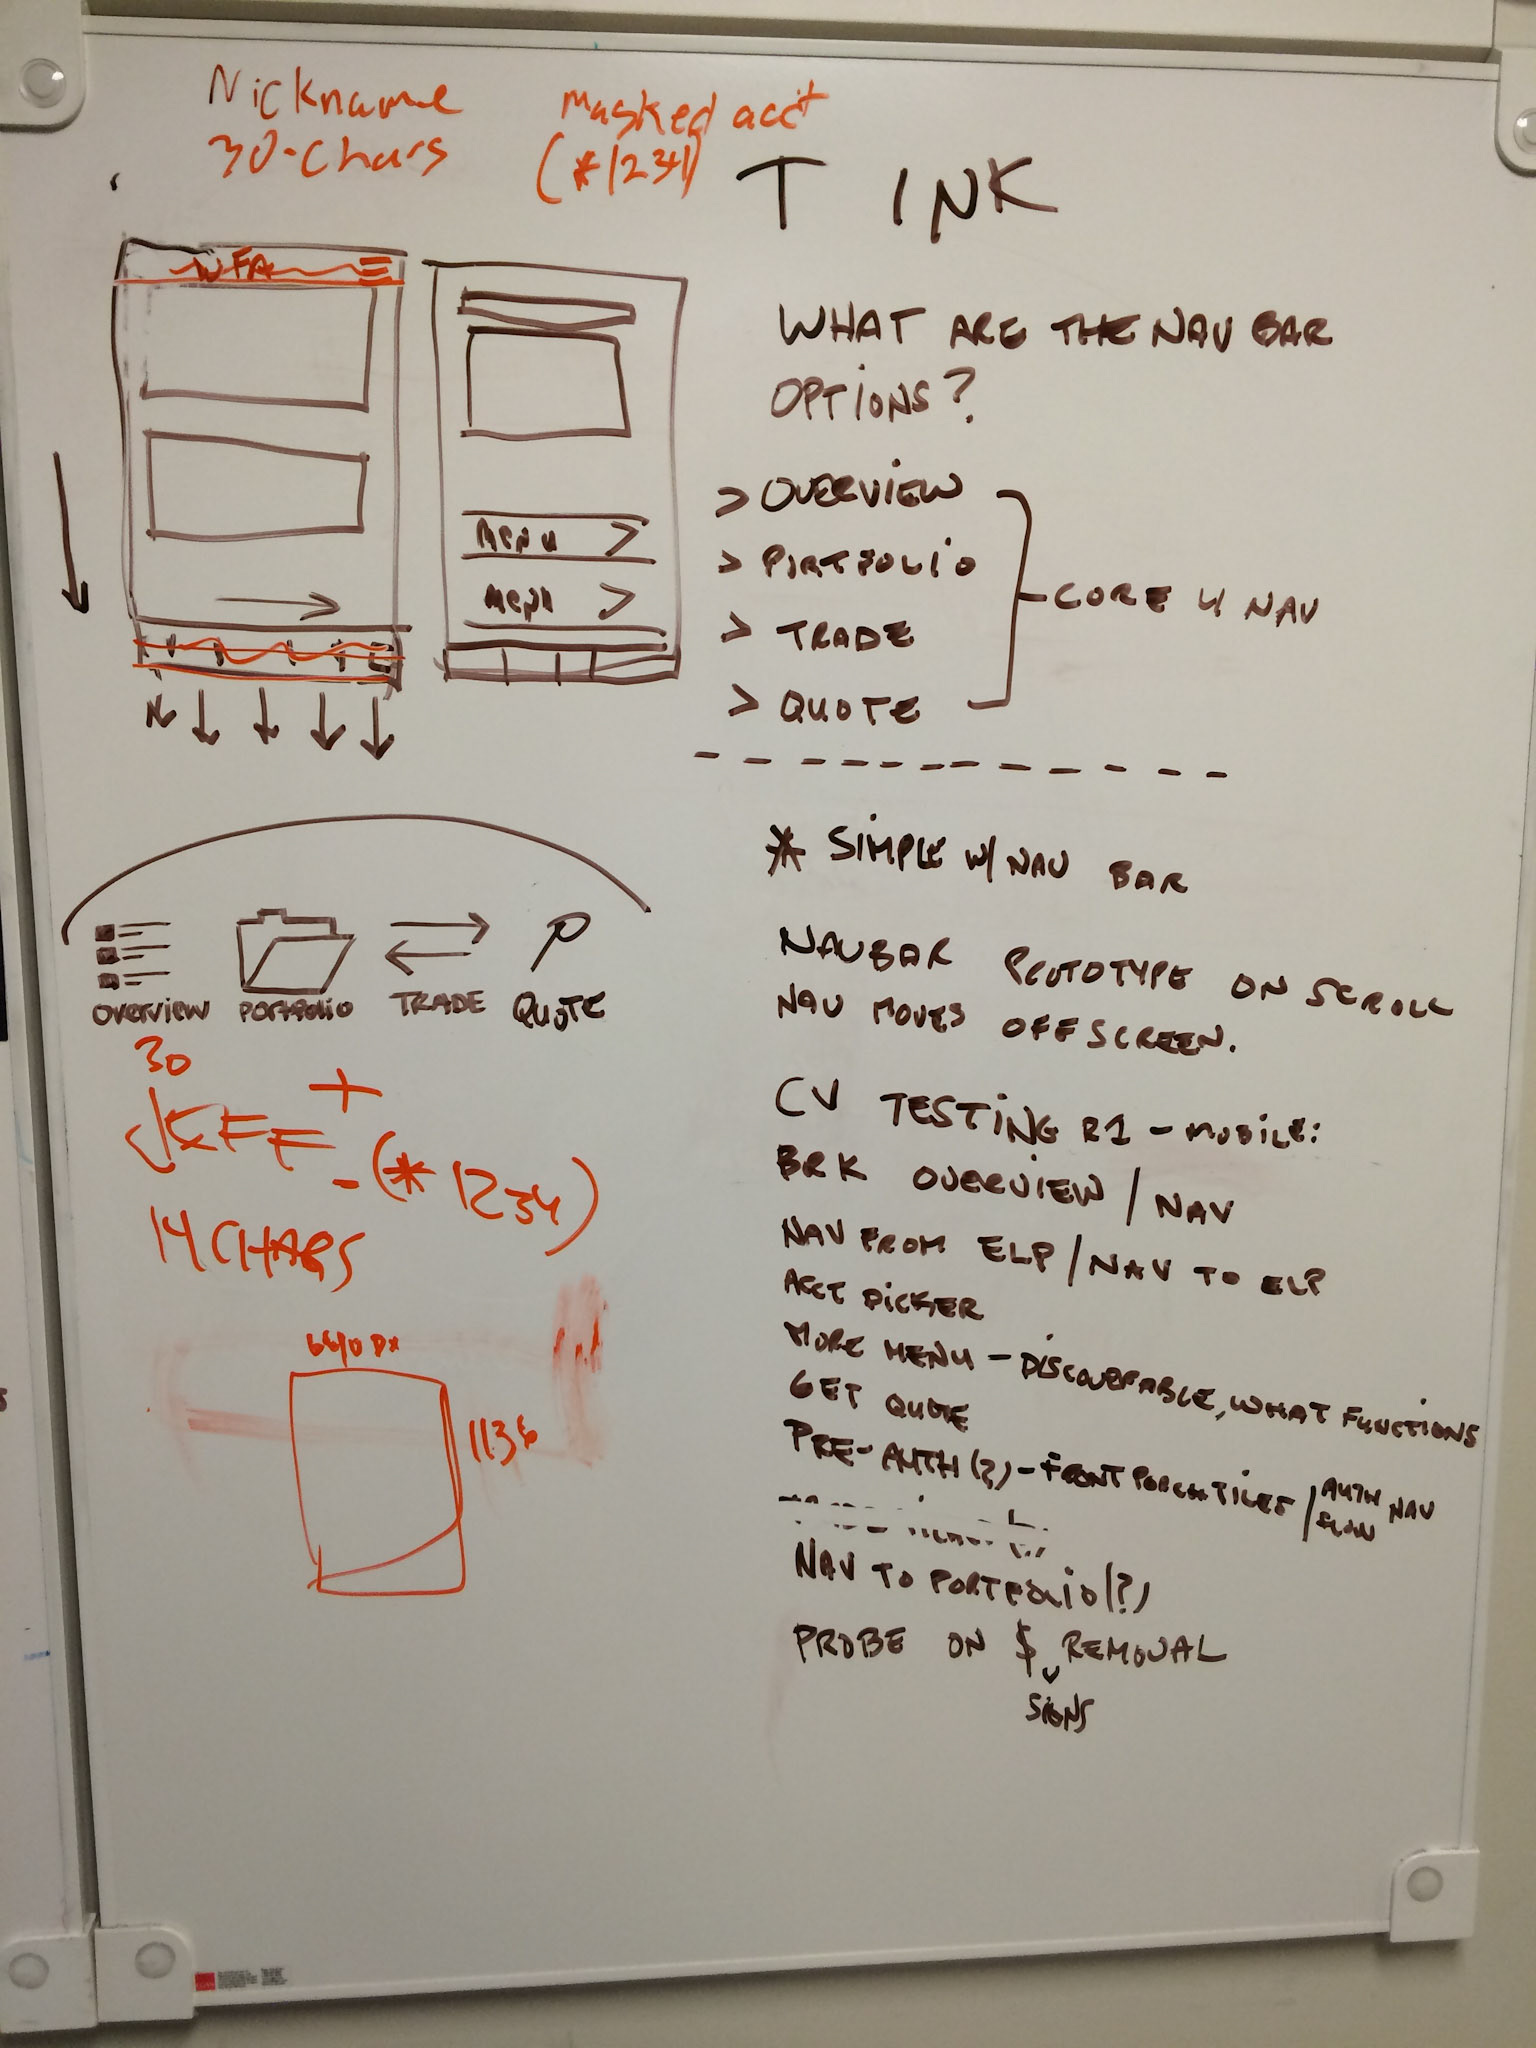 Nickname
30-Chars
Masked acct
(*1234)
T INK
WFA
MENU >
MENU >
WHAT ARE THE NAV BAR
OPTIONS?
> OVERVIEW
> PORTFOLIO
> TRADE
> QUOTE
CORE 4 NAV
OVERVIEW
PORTFOLIO
TRADE
QUOTE
30
JEFF
+
-(*1234)
14 CHARS
1136
* SIMPLE W/ NAV BAR
NAVBAR PROTOTYPE ON SCROLL
NAV MOVES OFFSCREEN.
CV TESTING R1 - MOBILE:
BRK OVERVIEW / NAV
NAV FROM ELP / NAV TO ELP
ACCT PICKER
MORE MENU - DISCOVERABLE, WHAT FUNCTIONS
GET QUOTE
PRE-AUTH (?) - FRONT PORCH TILES / AUTH FLOW NAV
NAV TO PORTFOLIO (?)
PROBE ON $ REMOVAL
SIGNS